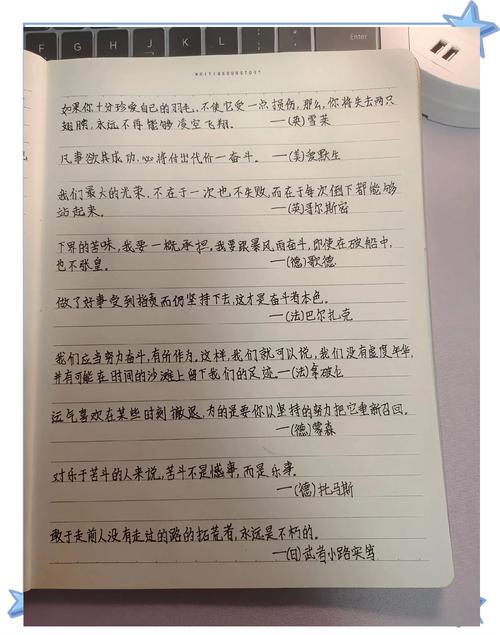 Enter
H
J
K
L
WRITINGOURSTORY
如果你十分珍爱自己的羽毛,不使它受一点损伤,那么,你将失去两只
翅膀,永远不再能够凌空飞翔。 —(英)雪莱
凡事欲其成功,必将付出代价—奋斗。 —(美)爱默生
我们最大的光荣,不在于一次也不失败,而在于每次倒下都能够
站起来。 —(英)哥尔斯密
下界的苦味,我要一概承担,我要跟暴风雨奋斗,即使在破船中,
也不张皇。 —(德)歌德
做了好事受到指责而仍坚持下去,这才是奋斗者本色。
—(法)巴尔扎克
我们应当努力奋斗,有所作为。这样,我们就可以说,我们没有虚度年华,
并有可能在时间的沙滩上留下我们的足迹。—(法)拿破仑
运气喜欢在某些时刻撤退,为的是要你以坚持的努力把它重新召回。
—(德)雾森
对乐于苦斗的人来说,苦斗不是憾事,而是乐事。
—(德)托马斯
敢于走前人没有走过的路的拓荒者,永远是不朽的。
—(日)武者小路实笃